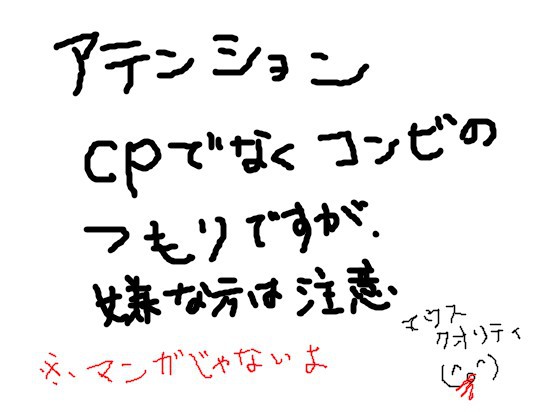 アテンション
CPでなくコンビの
つもりですが、
嫌な方は注意
※、マンガじゃないよ
マウス
クオリティ